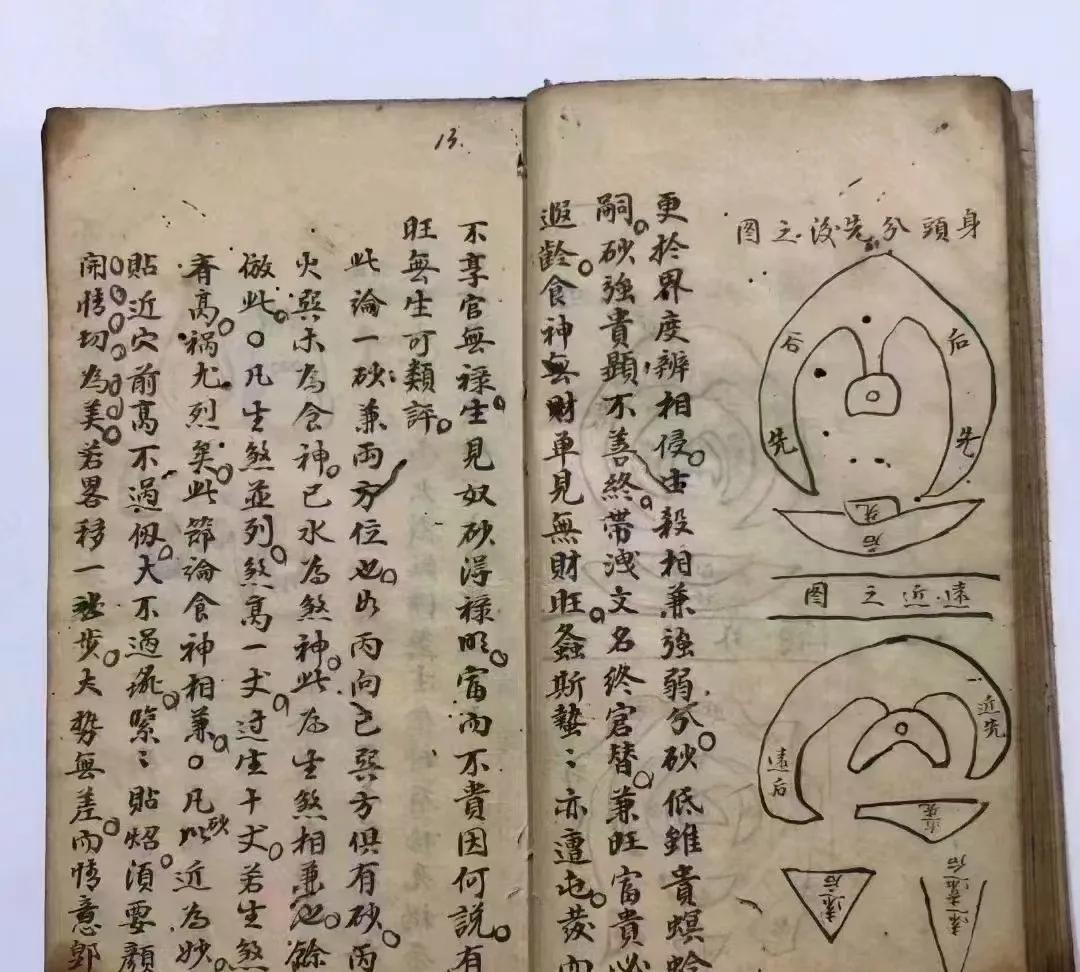 身頭分先後之图
后
后
先
先
先
后
遠近之图
近先
遠后
先
遠后
遠遠后
更於界度辨相侵生殺相兼強弱分砂低雖貴螟蛉
嗣砂強貴顯不善終帶洩文名終窘替兼旺富貴必
遐齡食神無財單見無財旺螽斯蟄〻亦遭屯發內
13.
不享官無祿生見奴砂淂祿明富而不貴因何說有
旺無生可類評
此論一砂兼両方位也如丙向已巽方俱有砂丙
火巽木為食神已水為煞神此為生煞相兼也餘
倣此凡生煞並列煞高一丈过生十丈若生煞
齊高禍尤烈矣此節論食神相兼凡砂以近為妙
貼近穴前高不過仭大不過琖緊〻貼炤湏要顏
開情切為美若畧移一步大勢無差而情意